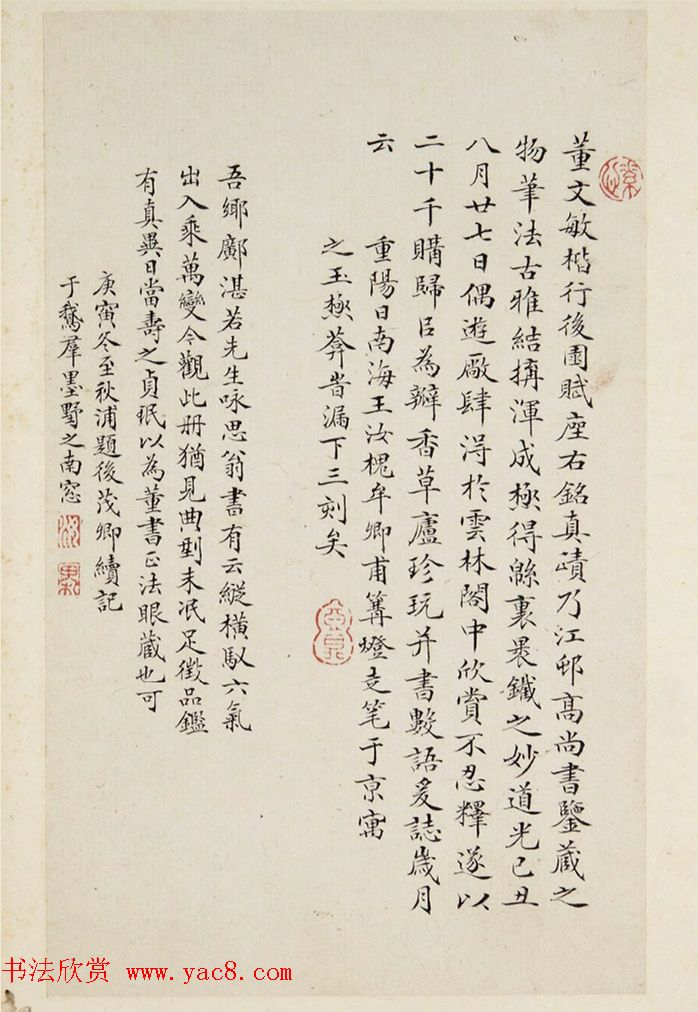 董文敏楷行後園賦座右銘真蹟乃江邨高尚書鑒藏之
物筆法古雅結搆渾成極得緜裏裹鐵之妙道光己丑
八月廿七日偶遊廠肆淂於雲林閣中欣賞不忍釋遂以
二十千購歸呂為瓣香草廬珍玩并書數語爰誌歲月
云
重陽日南海王汝槐牟卿甫篝燈走笔于京寓
之玉極莽旹漏下三刻矣
吾鄉鄺湛若先生咏思翁書有云縱橫馭六氣
出入乘萬變今觀此册猶見典型未泯足徵品鑑
有真異日當壽之貞珉以為董書正法眼藏也可
庚寅冬至秋浦題後茂卿續記
于鵞羣墨墅之南窓
书法欣赏 www.yac8.com